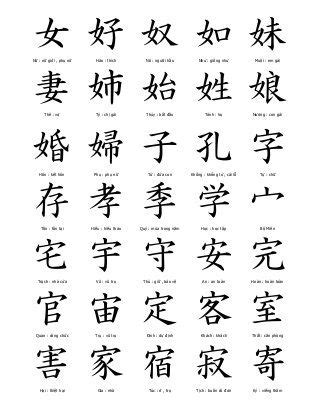 女 好 奴 如 妹
Nữ : nữ giới, phụ nữ Hảo : thích Nô : người hầu Như : giống như Muội : em gái
妻 姉 始 姓 娘
Thê : vợ Tỷ : chị gái Thủy : bắt đầu Tính : họ Nương : con gái
婚 婦 子 孔 字
Hôn : kết hôn Phụ : phụ nữ Tử : đứa con Khổng : khổng tử, cái lỗ Tự : chữ
存 孝 季 学 宀
Tồn : tồn tại Hiếu : hiếu thảo Quý : mùa trong năm Học : học tập Bộ Miên
宅 宇 守 安 完
Trạch : nhà cửa Vũ : vũ trụ Thủ : giữ, bảo vệ An : an toàn Hoàn : hoàn toàn
官 宙 定 客 室
Quan : công chức Trụ : vũ trụ Định : dự định Khách : khách Thất : căn phòng
害 家 宿 寂 寄
Hại : thiệt hại Gia : nhà Túc : ở, trọ Tịch : buồn Ký : viếng thăm